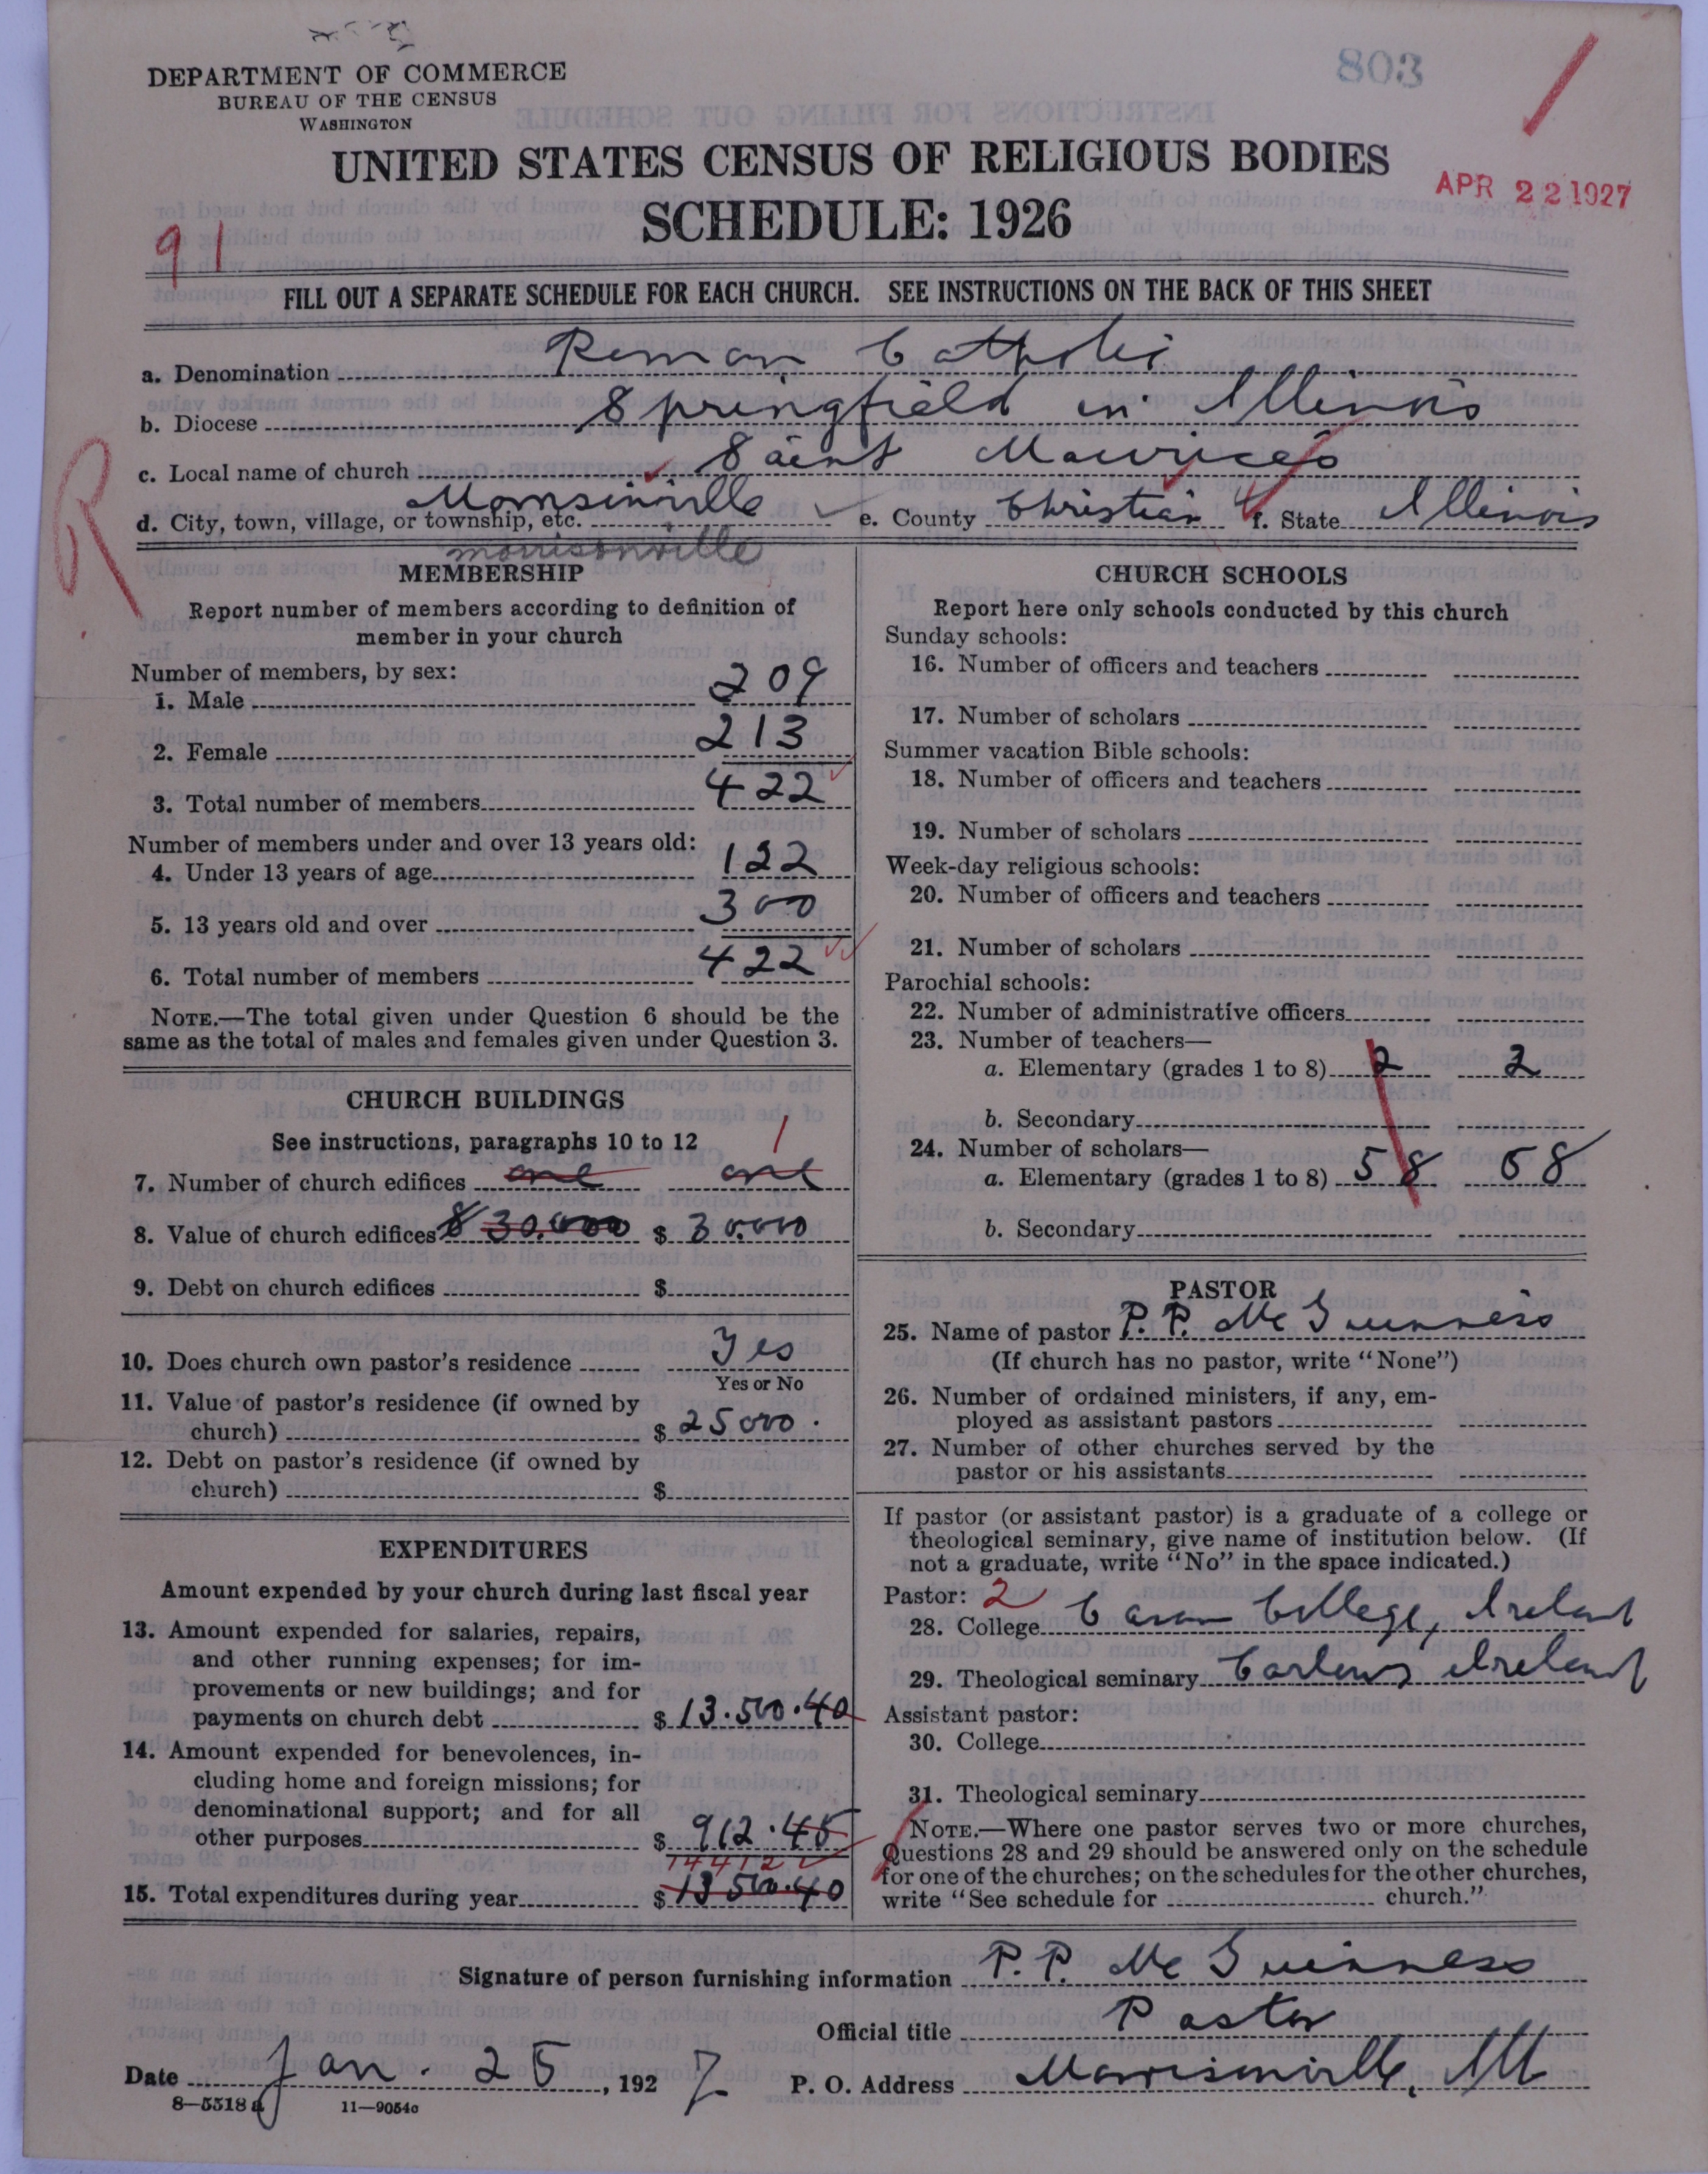 803
DEPARTMENT OF COMMERCE
BUREAU OF THE CENSUS
WASHINGTON
UNITED STATES CENSUS OF RELIGIOUS BODIES
APR 22 1927
SCHEDULE: 1926
91
FILL OUT A SEPARATE SCHEDULE FOR EACH CHURCH. SEE INSTRUCTIONS ON THE BACK OF THIS SHEET
a. Denomination Roman Catholic
b. Diocese Springfield in Illinois
c. Local name of church Saint Maurices
d. City, town, village, or township, etc. Morrisonville e. County Christian f. State Illinois
morrisonville
R
MEMBERSHIP
Report number of members according to definition of
member in your church
Number of members, by sex:
1. Male 209
2. Female 213
3. Total number of members 422
Number of members under and over 13 years old:
4. Under 13 years of age 122
5. 13 years old and over 300
6. Total number of members 422
NOTE.—The total given under Question 6 should be the
same as the total of males and females given under Question 3.
CHURCH BUILDINGS
See instructions, paragraphs 10 to 12 1
7. Number of church edifices one one
8. Value of church edifices $ 30.000 $ 30.000
9. Debt on church edifices $
10. Does church own pastor's residence Yes
Yes or No
11. Value of pastor's residence (if owned by
church) $ 25000.
12. Debt on pastor's residence (if owned by
church) $
EXPENDITURES
Amount expended by your church during last fiscal year
13. Amount expended for salaries, repairs,
and other running expenses; for im-
provements or new buildings; and for
payments on church debt $ 13.500.40
14. Amount expended for benevolences, in-
cluding home and foreign missions; for
denominational support; and for all
other purposes $ 912.45
14412
15. Total expenditures during year $ 13500.40
CHURCH SCHOOLS
Report here only schools conducted by this church
Sunday schools:
16. Number of officers and teachers
17. Number of scholars
Summer vacation Bible schools:
18. Number of officers and teachers
19. Number of scholars
Week-day religious schools:
20. Number of officers and teachers
21. Number of scholars
Parochial schools:
22. Number of administrative officers
23. Number of teachers—
a. Elementary (grades 1 to 8) 2 2
b. Secondary
24. Number of scholars—
a. Elementary (grades 1 to 8) 58 58
b. Secondary
PASTOR
25. Name of pastor P. P. Mc Guinness
(If church has no pastor, write "None")
26. Number of ordained ministers, if any, em-
ployed as assistant pastors
27. Number of other churches served by the
pastor or his assistants
If pastor (or assistant pastor) is a graduate of a college or
theological seminary, give name of institution below. (If
not a graduate, write "No" in the space indicated.)
Pastor: 2
28. College Cavan College, Ireland
29. Theological seminary Carlow Ireland
Assistant pastor:
30. College
31. Theological seminary
NOTE.—Where one pastor serves two or more churches,
Questions 28 and 29 should be answered only on the schedule
for one of the churches; on the schedules for the other churches,
write "See schedule for church."
Signature of person furnishing information P. P. Mc Guinness
Official title Pastor
Date Jan. 25, 1927 P. O. Address Morrisonville, Ill
8—5518a 11—9054c